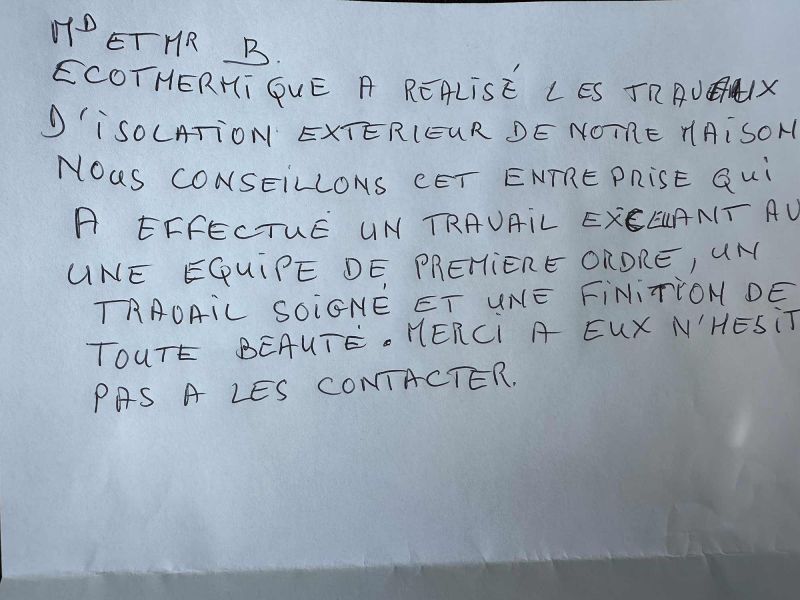 MD ET MR B.
ECOTHERMIQUE A REALISÉ LES TRAVAUX
D'ISOLATION EXTERIEUR DE NOTRE MAISON
NOUS CONSEILLONS CET ENTREPRISE QUI
A EFFECTUÉ UN TRAVAIL EXCELLANT AV
UNE EQUIPE DE PREMIERE ORDRE, UN
TRAVAIL SOIGNÉ ET UNE FINITION DE
TOUTE BEAUTÉ. MERCI A EUX N'HESIT
PAS A LES CONTACTER.